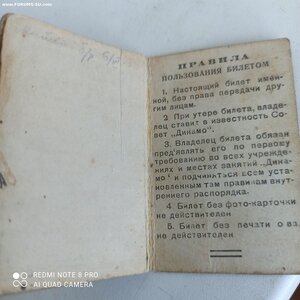 www.FORUMS-SU.com
ПРАВИЛА
ПОЛЬЗОВАНИЯ БИЛЕТОМ
1. Настоящий билет имен-
ной, без права передачи дру-
гим лицам.
2 При утере билета, владе-
лец ставит в известность Со-
вет „Динамо“.
3. Владелец билета обязан
предъявлять его по первому
требованию во всех учрежде-
ниях и местах занятий „Дина-
мо“ и подчиняться всем уста-
новленным там правилам внутри-
него распорядка.
4 Билет без фото-карточки
не действителен
5. Билет без печати о вз.
не действителен
REDMI NOTE 8 PRO
AI QUAD CAMERA